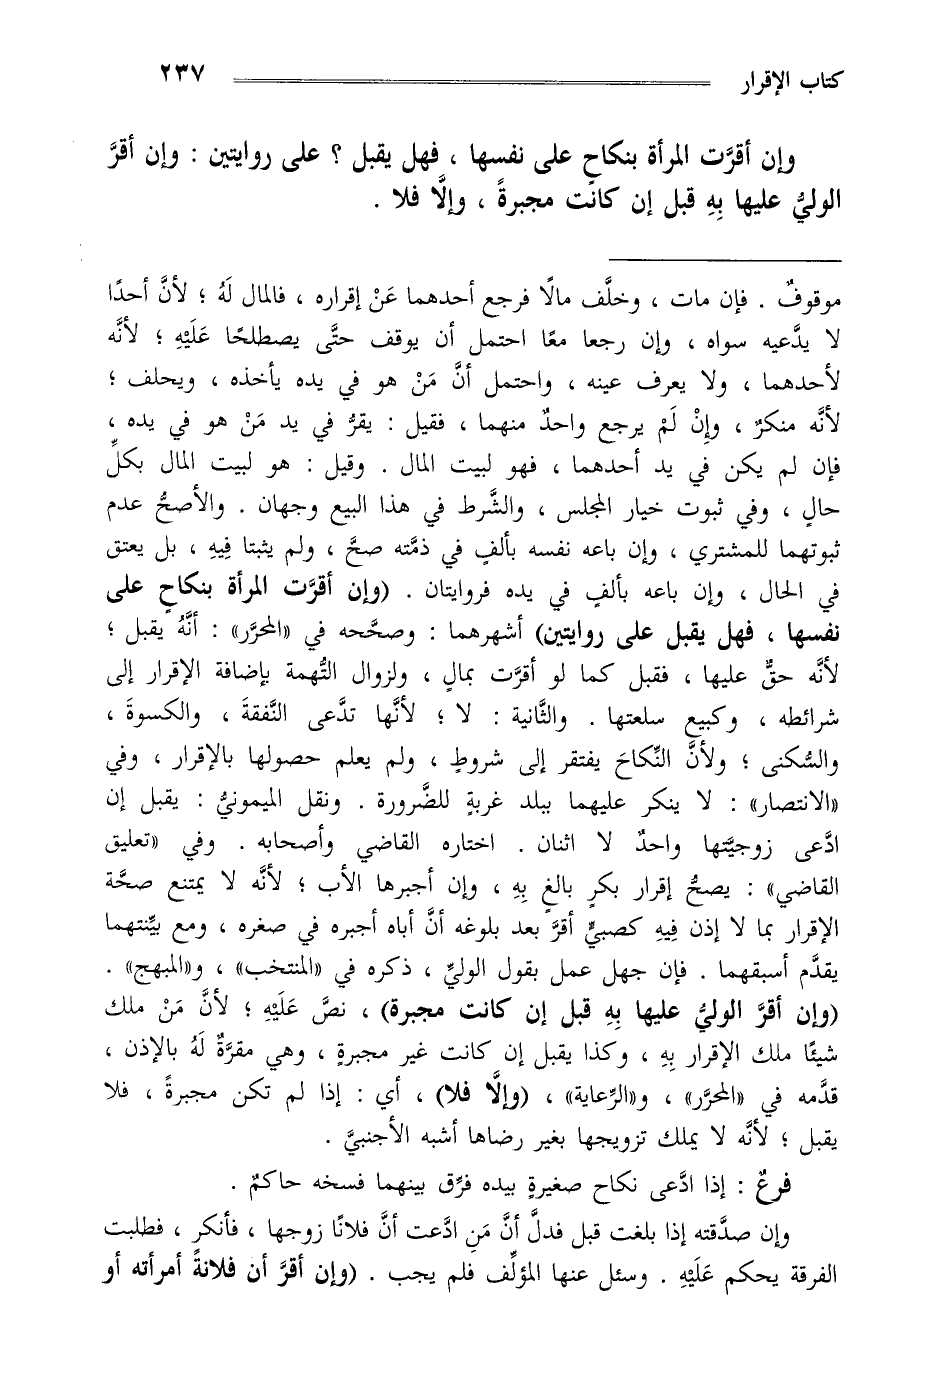 كتاب الإقرار ٢٣٧
وإن أقرَّت المرأة بنكاحٍ على نفسها ، فهل يقبل ؟ على روايتين : وإن أقرَّ
الوليُّ عليها بِهِ قبل إن كانت مجبرةً ، وإلَّا فلا .
موقوفٌ . فإن مات ، وخلَّف مالًا فرجع أحدهما عَنْ إقراره ، فالمال لَهُ ؛ لأنَّ أحدًا
لا يدَّعيه سواه ، وإن رجعا معًا احتمل أن يوقف حتَّى يصطلحًا عَلَيْهِ ؛ لأنَّه
لأحدهما ، ولا يعرف عينه ، واحتمل أنَّ مَنْ هو في يده يأخذه ، ويحلف ؛
لأنَّه منكرٌ ، وإِنْ لَمْ يرجع واحدٌ منهما ، فقيل : يقرُّ في يد مَنْ هو في يده ،
فإن لم يكن في يد أحدهما ، فهو لبيت المال . وقيل : هو لبيت المال بكلِّ
حالٍ ، وفي ثبوت خيار المجلس ، والشَّرط في هذا البيع وجهان . والأصحُّ عدم
ثبوتهما للمشتري ، وإن باعه نفسه بألفٍ في ذمَّته صحَّ ، ولم يثبتا فِيهِ ، بل يعتق
في الحال ، وإن باعه بألفٍ في يده فروايتان . (وإن أقرَّت المرأة بنكاحٍ على
نفسها ، فهل يقبل على روايتين) أشهرهما : وصحَّحه في «المحرَّر» : أنَّهُ يقبل ؛
لأنَّه حقٌّ عليها ، فقبل كما لو أقرَّت بمالٍ ، ولزوال التُّهمة بإضافة الإقرار إلى
شرائطه ، وكبيع سلعتها . والثَّانية : لا ؛ لأنَّها تدَّعى النَّفقةَ ، والكسوةَ ،
والسُّكنى ؛ ولأنَّ النِّكاحَ يفتقر إلى شروطٍ ، ولم يعلم حصولها بالإقرار ، وفي
«الانتصار» : لا ينكر عليهما ببلد غربةٍ للضَّرورة . ونقل الميمونيُّ : يقبل إن
ادَّعى زوجيَّتها واحدٌ لا اثنان . اختاره القاضي وأصحابه . وفي «تعليق
القاضي» : يصحُّ إقرار بكرٍ بالغٍ بِهِ ، وإن أجبرها الأب ؛ لأنَّه لا يمتنع صحَّة
الإقرار بما لا إذن فِيهِ كصبيٍّ أقرَّ بعد بلوغه أنَّ أباه أجبره في صغره ، ومع بيِّنتهما
يقدَّم أسبقهما . فإن جهل عمل بقول الوليِّ ، ذكره في «المنتخب» ، و«المبهج» .
(وإن أقرَّ الوليُّ عليها بِهِ قبل إن كانت مجبرة) ، نصَّ عَلَيْهِ ؛ لأنَّ مَنْ ملك
شيئًا ملك الإقرار بِهِ ، وكذا يقبل إن كانت غير مجبرةٍ ، وهي مقرَّةٌ لَهُ بالإذن ،
قدَّمه في «المحرَّر» ، و«الرِّعاية» ، (وإلَّا فلا) ، أي : إذا لم تكن مجبرةً ، فلا
يقبل ؛ لأنَّه لا يملك تزويجها بغير رضاها أشبه الأجنبيَّ .
فرعٌ : إذا ادَّعى نكاح صغيرةٍ بيده فرِّق بينهما فسخه حاكمٌ .
وإن صدَّقته إذا بلغت قبل فدلَّ أنَّ مَنِ ادَّعت أنَّ فلانًا زوجها ، فأنكر ، فطلبت
الفرقة يحكم عَلَيْهِ . وسئل عنها المؤلِّف فلم يجب . (وإن أقرَّ أن فلانةً أمرأته أو